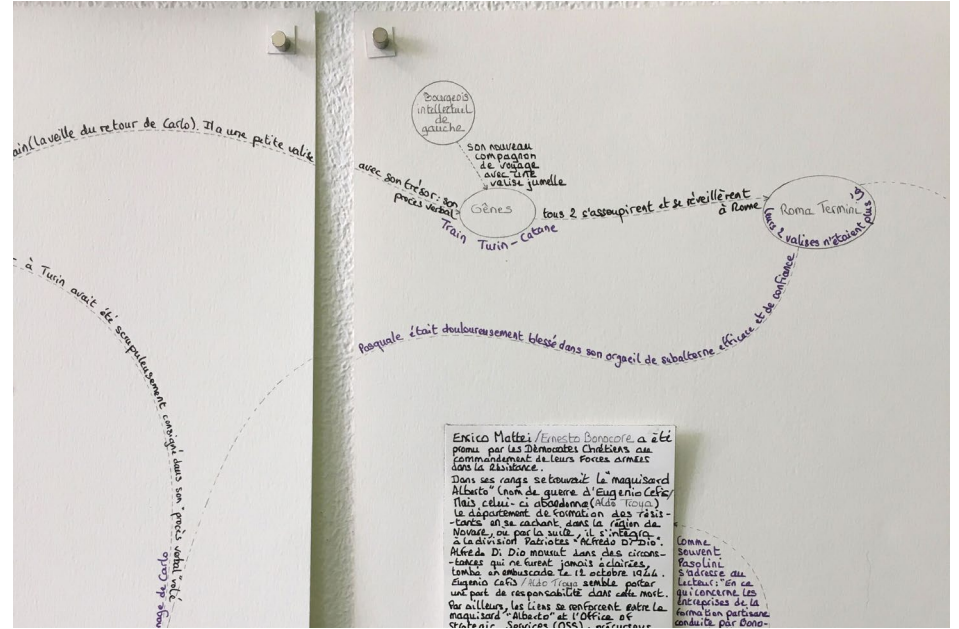 ain (la veille du retour de Carlo). Il a une petite valise
à Turin avait été scrupuleusement consigné dans son "procès verbal" volé
nage de Carlo
Bourgeois
intellectuel
de
gauche
son nouveau
compagnon
de voyage
avec une
valise jumelle
avec son trésor : son
procès verbal
Gênes
Train Turin-Catane
tous 2 s'assoupirent et se réveillèrent
à Rome
Roma Termini
leurs 2 valises n'étaient plus là,
Pasquale était douloureusement blessé dans son orgueil de subalterne efficace et de confiance
Enrico Mattei/Ernesto Bonocore a été
promu par les Démocrates Chrétiens au
commandement de leurs Forces armées
dans la Résistance.
Dans ses rangs se trouvait le "maquisard
Alberto" (nom de guerre d'Eugenio Cefis/
Mais celui-ci abandonna (Aldo Troya)
le département de formation des résis-
-tants en se cachant dans la région de
Novare, ou par la suite, il s'intégra
à la division Patriotes "Alfredo Di Dio".
Alfredo Di Dio mourut dans des circons-
-tances qui ne furent jamais éclairées,
tombé en embuscade le 12 octobre 1944.
Eugenio Cefis/Aldo Troya semble porter
une part de responsabilité dans cette mort.
Par ailleurs, les liens se renforcent entre le
maquisard "Alberto" et l'Office of
Strategic Services (OSS), précurseur
Comme
souvent
Pasolini
s'adresse au
lecteur : "En ce
qui concerne les
entreprises de la
formation partisane
conduite par Bono-